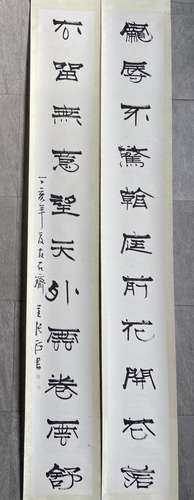 寵辱不驚看庭前花開花落
去留無意望天外雲卷雲舒
丁亥年